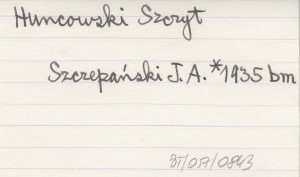 Huncowski Szczyt
Szczepański J. A. *1935 bm
BT/057/0843